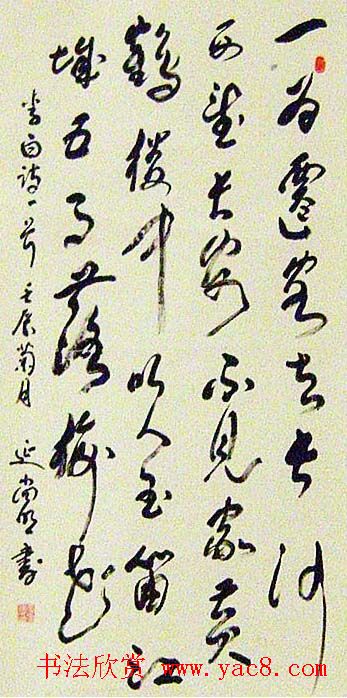 一为遷客去长沙
西望长安不見家黄
鶴楼中吹玉笛江
城五月落梅花
李白詩一首 壬辰菊月 延尚明书
书法欣赏 www.yac8.com